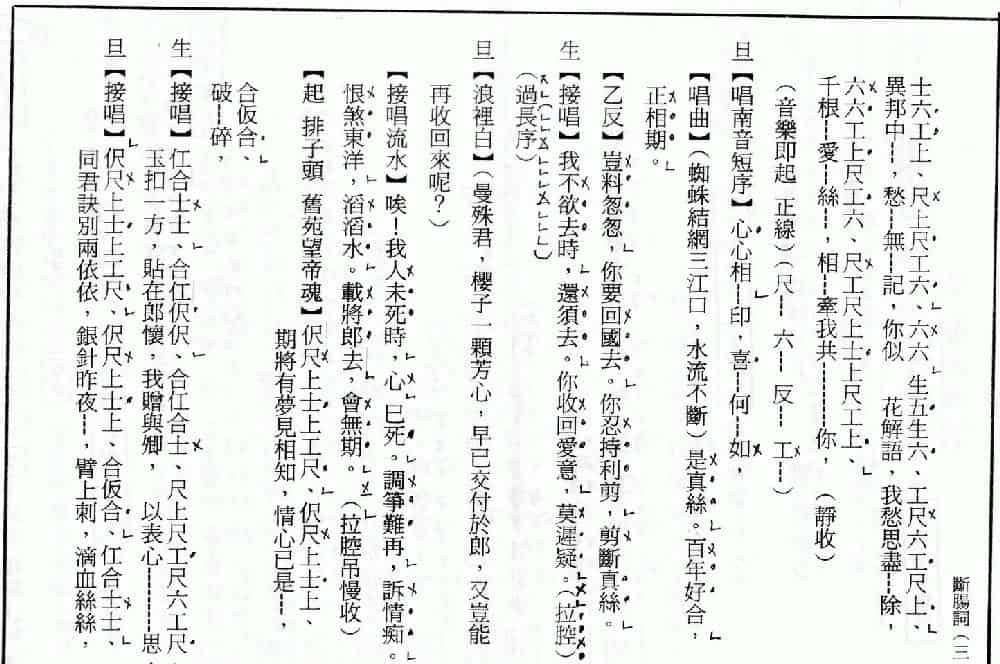 斷腸詞（三
士六工上、尺上尺工六、六六 生五生六、工尺六工尺上、
異邦中┅，愁┅無┅記，你似 花解語，我愁思盡┅除，
六六工上尺工六、尺工尺上士上尺工上、
千根┅愛┅絲┅，相┅牽我共┅┅┅你， （靜收）
（音樂即起 正線）（尺┅六┅反┅工┅）
旦【唱南音短序】心心相┅印，喜┅何┅如，
【唱曲】（蜘蛛結網三江口，水流不斷）是真絲。百年好合，
正相期。
【乙反】豈料怱怱，你要回國去。你忍持利剪，剪斷真絲。
生【接唱】我不欲去時，還須去。你收回愛意，莫遲疑。（拉腔）
（過長序）
旦【浪裡白】（曼殊君，櫻子一顆芳心，早已交付於郎，又豈能
再收回來呢？）
【接唱流水】唉！我人未死時，心已死。調箏難再，訴情痴。
恨煞東洋，滔滔水。載將郎去，會無期。 （拉腔吊慢收）
【起 排子頭 舊苑望帝魂】伬尺上士上工尺、伬尺上士上、
期將有夢見相知，情心已是┅，
合仮合、
破┅碎，
生【接唱】仜合士士、合仜伬伬、合仜合士、尺上尺工尺六工尺
玉扣一方，貼在郎懷，我贈與卿， 以表心┅┅思，
旦【接唱】伬尺上士上工尺、伬尺上士上、合仮合、仜合士士、
同君訣別兩依依，銀針昨夜┅ 臂上刺，滴血絲絲，